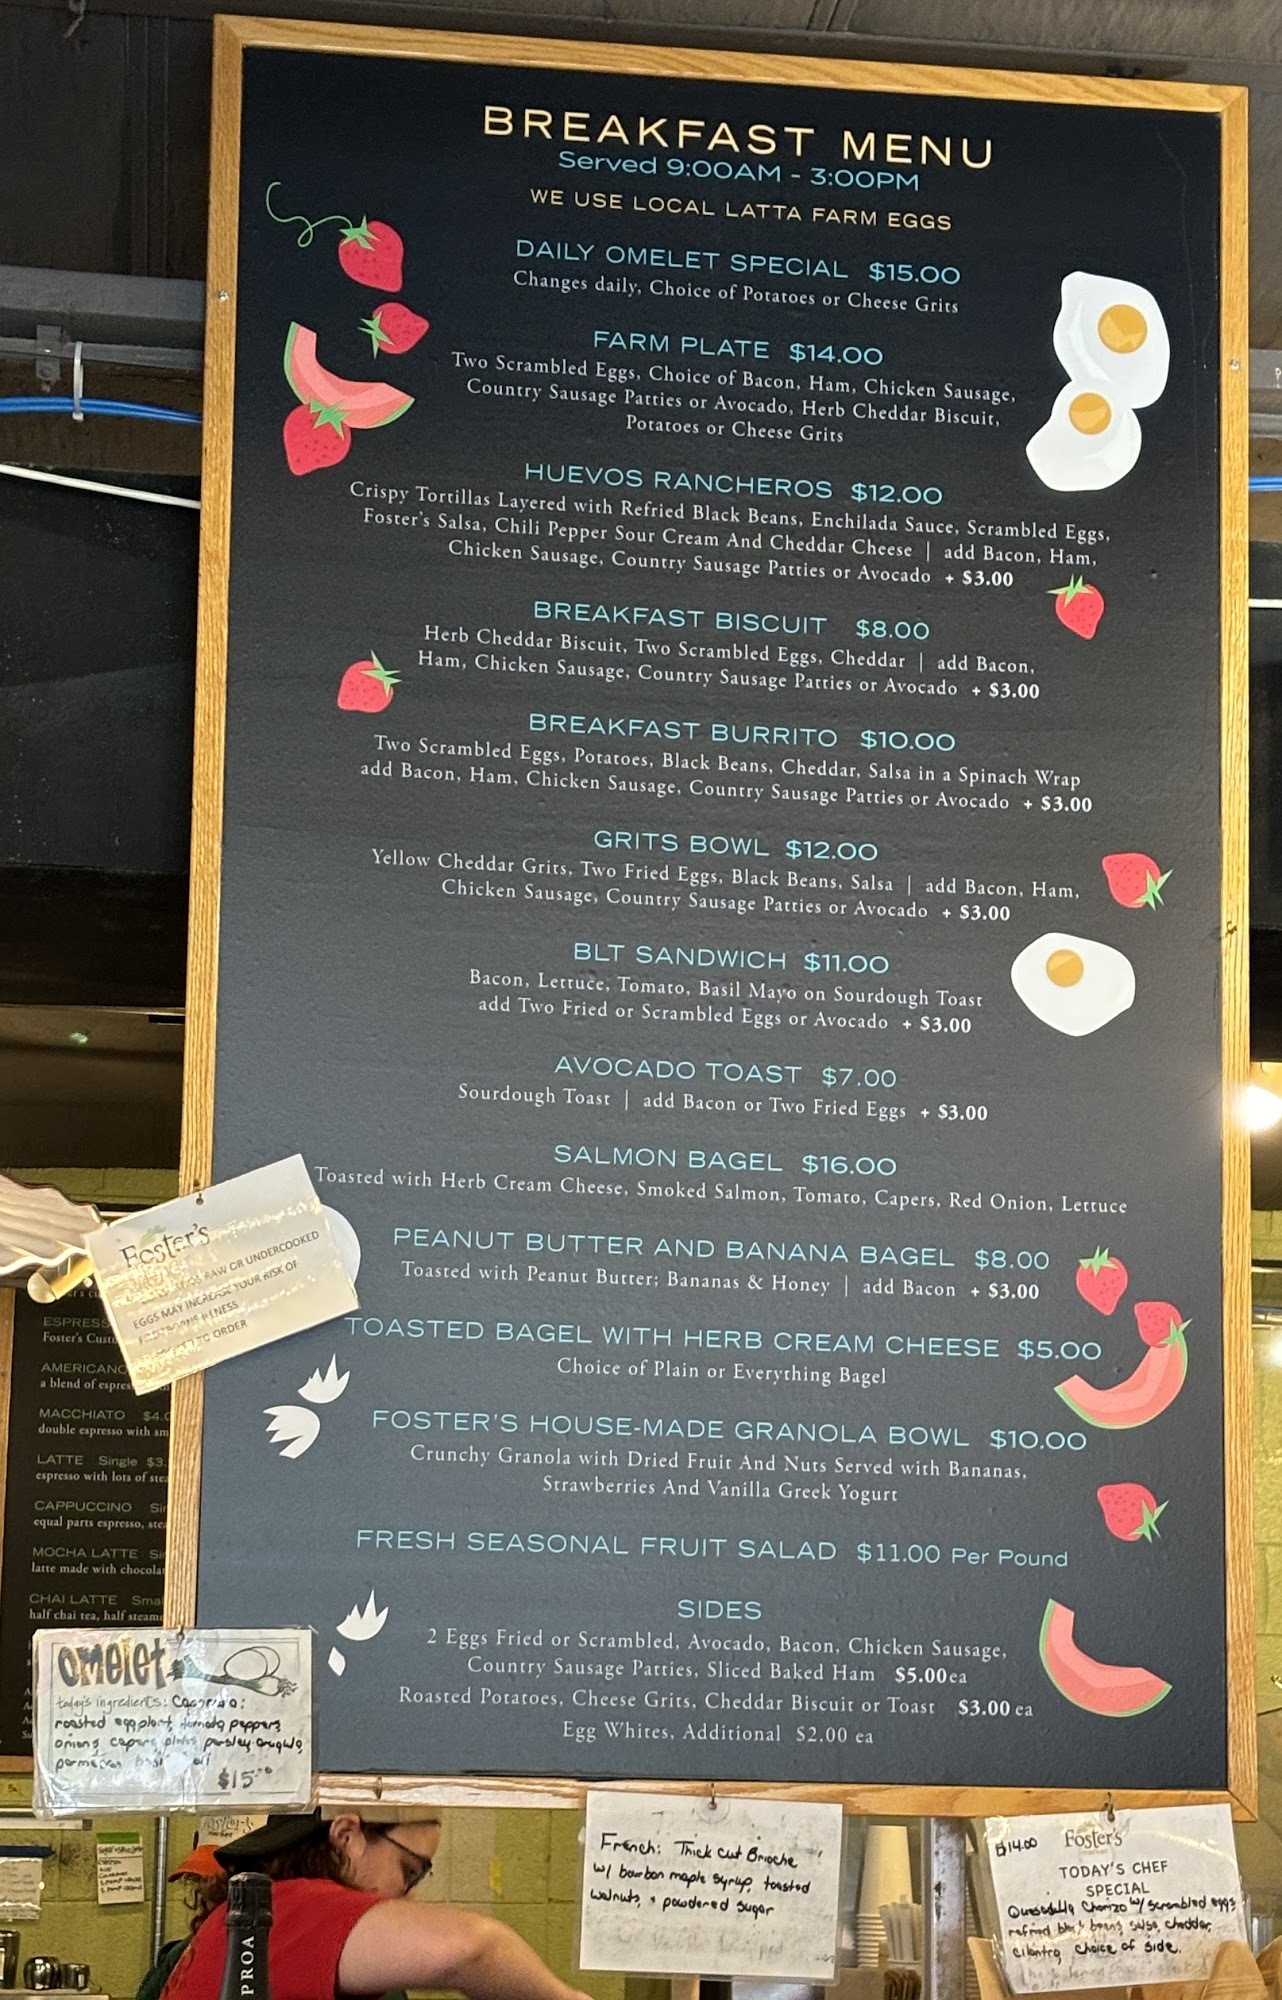 BREAKFAST MENU
Served 9:00AM - 3:00PM
WE USE LOCAL LATTA FARM EGGS
DAILY OMELET SPECIAL $15.00
Changes daily, Choice of Potatoes or Cheese Grits
FARM PLATE $14.00
Two Scrambled Eggs, Choice of Bacon, Ham, Chicken Sausage,
Country Sausage Patties or Avocado, Herb Cheddar Biscuit,
Potatoes or Cheese Grits
HUEVOS RANCHEROS $12.00
Crispy Tortillas Layered with Refried Black Beans, Enchilada Sauce, Scrambled Eggs,
Foster's Salsa, Chili Pepper Sour Cream And Cheddar Cheese | add Bacon, Ham,
Chicken Sausage, Country Sausage Patties or Avocado + $3.00
BREAKFAST BISCUIT $8.00
Herb Cheddar Biscuit, Two Scrambled Eggs, Cheddar | add Bacon,
Ham, Chicken Sausage, Country Sausage Patties or Avocado + $3.00
BREAKFAST BURRITO $10.00
Two Scrambled Eggs, Potatoes, Black Beans, Cheddar, Salsa in a Spinach Wrap
add Bacon, Ham, Chicken Sausage, Country Sausage Patties or Avocado + $3.00
GRITS BOWL $12.00
Yellow Cheddar Grits, Two Fried Eggs, Black Beans, Salsa | add Bacon, Ham,
Chicken Sausage, Country Sausage Patties or Avocado + $3.00
BLT SANDWICH $11.00
Bacon, Lettuce, Tomato, Basil Mayo on Sourdough Toast
add Two Fried or Scrambled Eggs or Avocado + $3.00
AVOCADO TOAST $7.00
Sourdough Toast | add Bacon or Two Fried Eggs + $3.00
SALMON BAGEL $16.00
Toasted with Herb Cream Cheese, Smoked Salmon, Tomato, Capers, Red Onion, Lettuce
PEANUT BUTTER AND BANANA BAGEL $8.00
Toasted with Peanut Butter; Bananas & Honey | add Bacon + $3.00
TOASTED BAGEL WITH HERB CREAM CHEESE $5.00
Choice of Plain or Everything Bagel
FOSTER'S HOUSE-MADE GRANOLA BOWL $10.00
Crunchy Granola with Dried Fruit And Nuts Served with Bananas,
Strawberries And Vanilla Greek Yogurt
FRESH SEASONAL FRUIT SALAD $11.00 Per Pound
SIDES
2 Eggs Fried or Scrambled, Avocado, Bacon, Chicken Sausage,
Country Sausage Patties, Sliced Baked Ham $5.00ea
Roasted Potatoes, Cheese Grits, Cheddar Biscuit or Toast $3.00 ea
Egg Whites, Additional $2.00 ea
Foster's
RAW OR UNDERCOOKED
EGGS MAY INCREASE YOUR RISK OF
ILLNESS
ORDER
ESPRESS
Foster's Custo
AMERICANO
a blend of espres
MACCHIATO $4.0
double espresso with sm
LATTE Single $3.
espresso with lots of stea
CAPPUCCINO Si
equal parts espresso, stea
MOCHA LATTE Si
latte made with chocola
CHAI LATTE Smal
half chai tea, half steame
omelet
today's ingredients:
roasted eggplant, tomato, peppers
onions, capers, olives, parsley, arugula,
parmesan
$15.00
French: Thick cut Brioche
w/ bourbon maple syrup, toasted
walnuts, + powdered sugar
$14.00
Foster's
TODAY'S CHEF
SPECIAL
Quesadilla Chorizo w/ scrambled eggs
refried black beans, salsa, cheddar,
cilantro, choice of side.
PROA